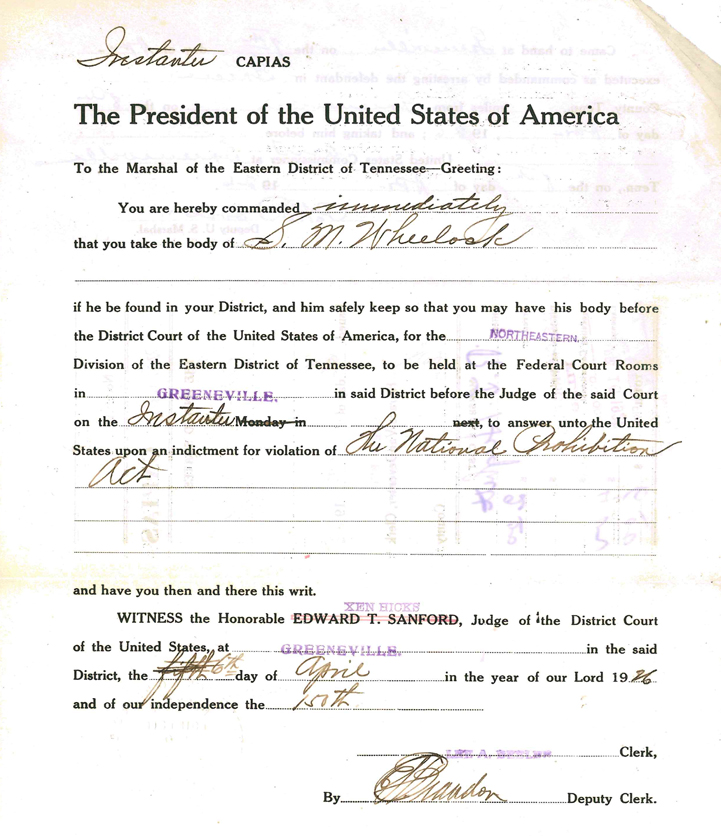 Instanter CAPIAS
The President of the United States of America
To the Marshal of the Eastern District of Tennessee—Greeting:
You are hereby commanded immediately
that you take the body of S. M. Wheelock
if he be found in your District, and him safely keep so that you may have his body before
the District Court of the United States of America, for the NORTHEASTERN.
Division of the Eastern District of Tennessee, to be held at the Federal Court Rooms
in GREENEVILLE, in said District before the Judge of the said Court
on the Instanter Monday in next, to answer unto the United
States upon an indictment for violation of The National Prohibition
Act
and have you then and there this writ.
XEN HICKS
WITNESS the Honorable EDWARD T. SANFORD, Judge of the District Court
of the United States, at GREENEVILLE. in the said
District, the fifth 6th day of April in the year of our Lord 1926
and of our independence the 150th
LEE A. Clerk,
By Deputy Clerk.